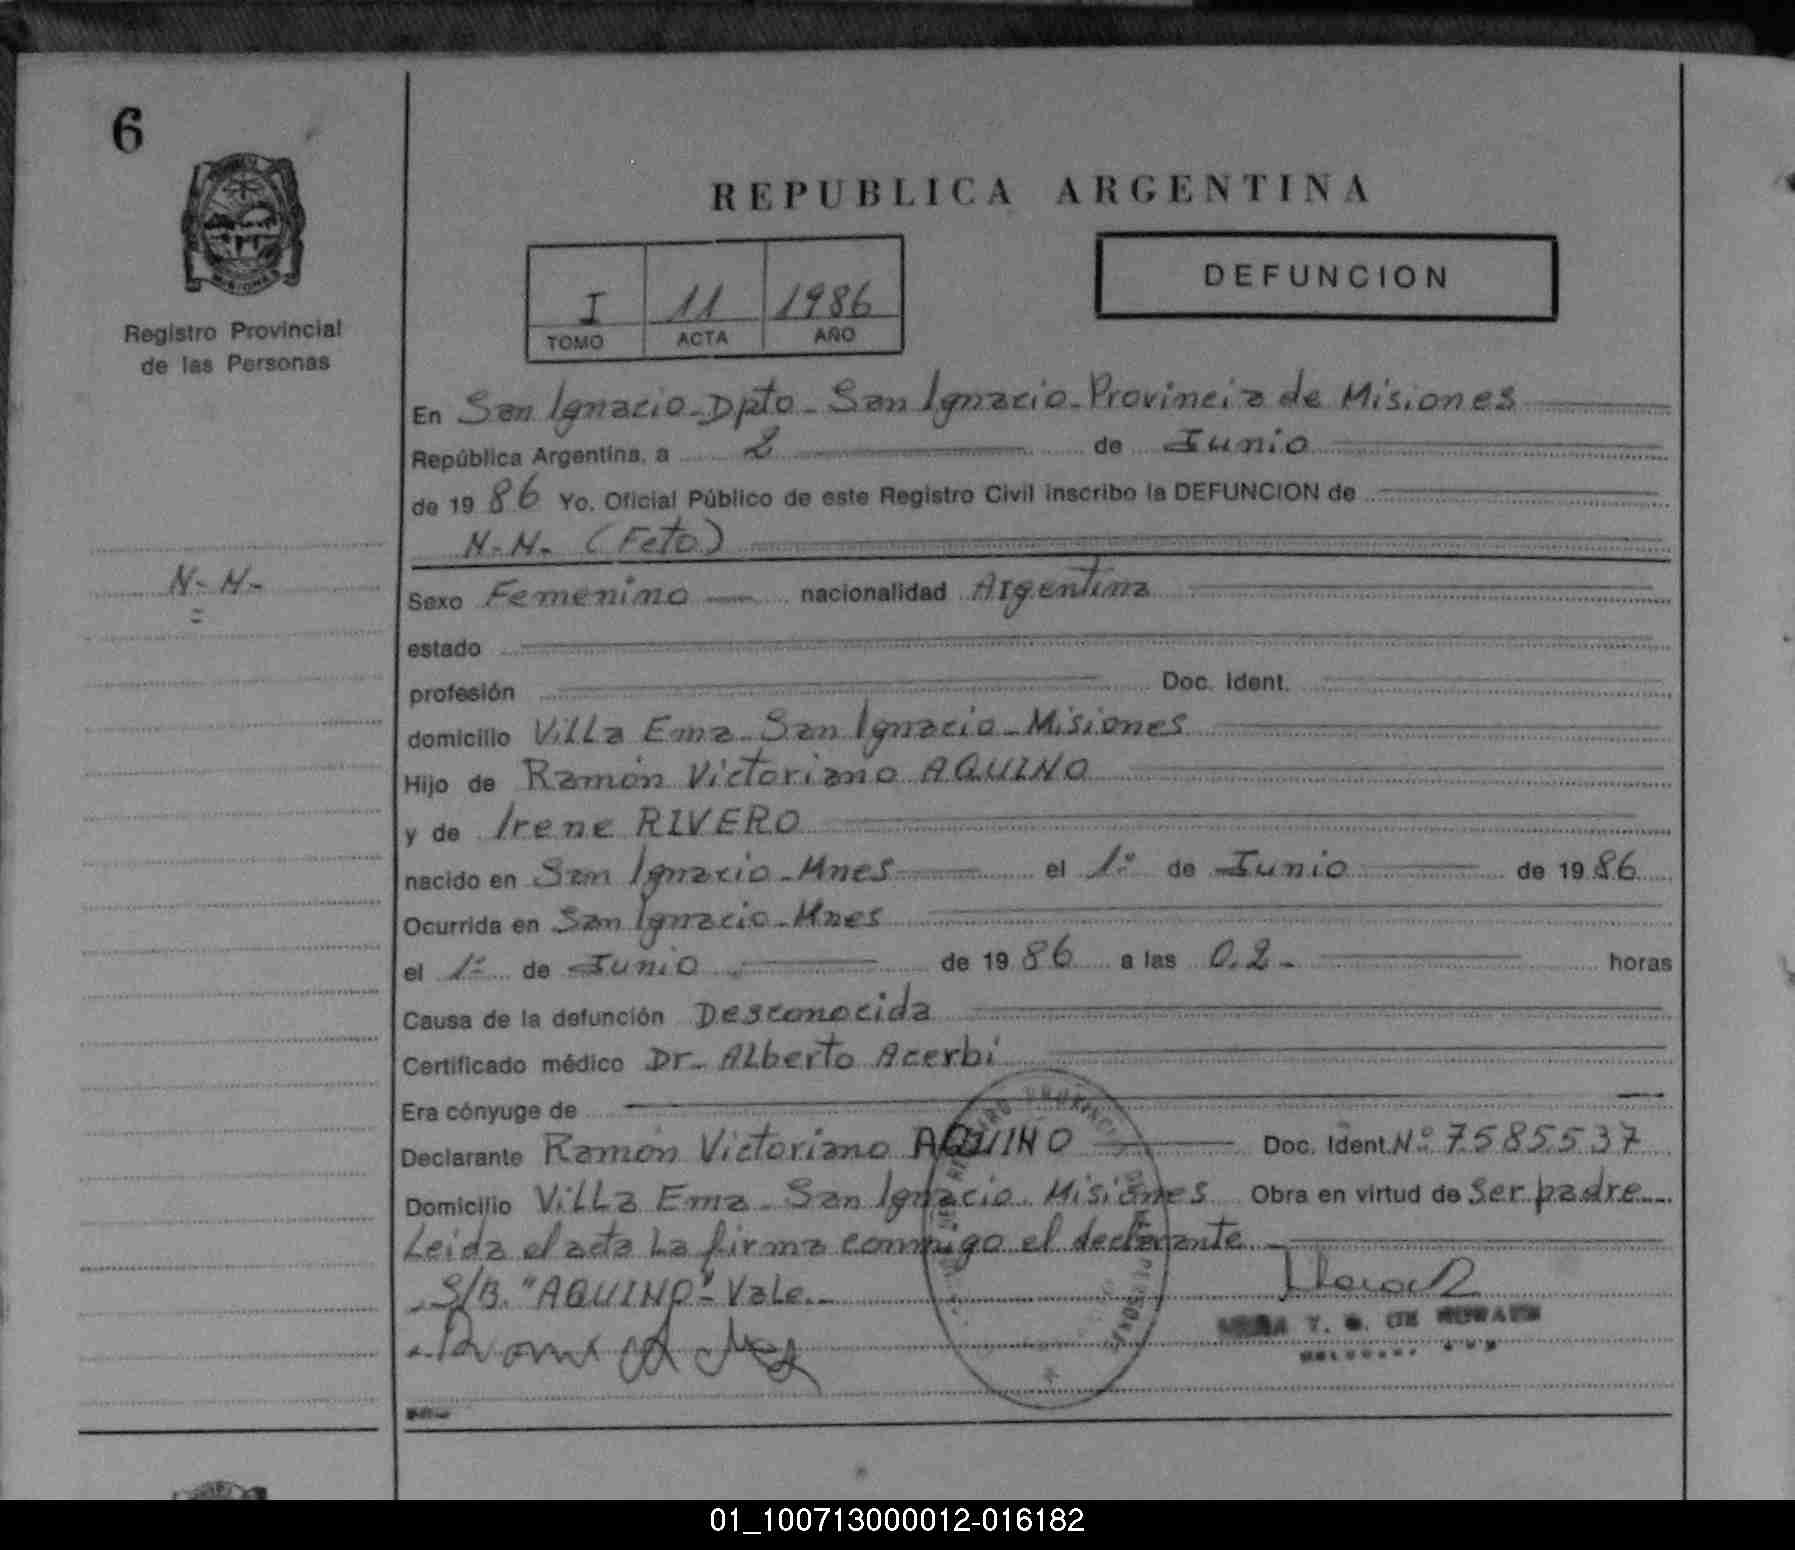 6
MISIONES
Registro Provincial
de las Personas
REPUBLICA ARGENTINA
I 11 1986
TOMO ACTA AÑO
DEFUNCION
En San Ignacio-Dpto-San Ignacio-Provincia de Misiones
República Argentina, a 2 de Junio
de 1986 Yo, Oficial Público de este Registro Civil inscribo la DEFUNCION de
N-N- (Feto)
N-N-
Sexo Femenino nacionalidad Argentina
estado
profesión Doc. Ident.
domicilio Villa Ema-San Ignacio-Misiones
Hijo de Ramón Victoriano AQUINO
y de Irene RIVERO
nacido en San Ignacio-Mnes el 1º de Junio de 1986
Ocurrida en San Ignacio-Mnes
el 1º de Junio de 1986 a las 0.2- horas
Causa de la defunción Desconocida
Certificado médico Dr- Alberto Acerbi
Era cónyuge de
Declarante Ramón Victoriano AQUINO Doc. Ident. Nº 7.585.537
Domicilio Villa Ema-San Ignacio-Misiones Obra en virtud de Ser padre
Leida el acta la firma conmigo el declarante
S/B. "AQUINO"- Vale.-
01_100713000012-016182